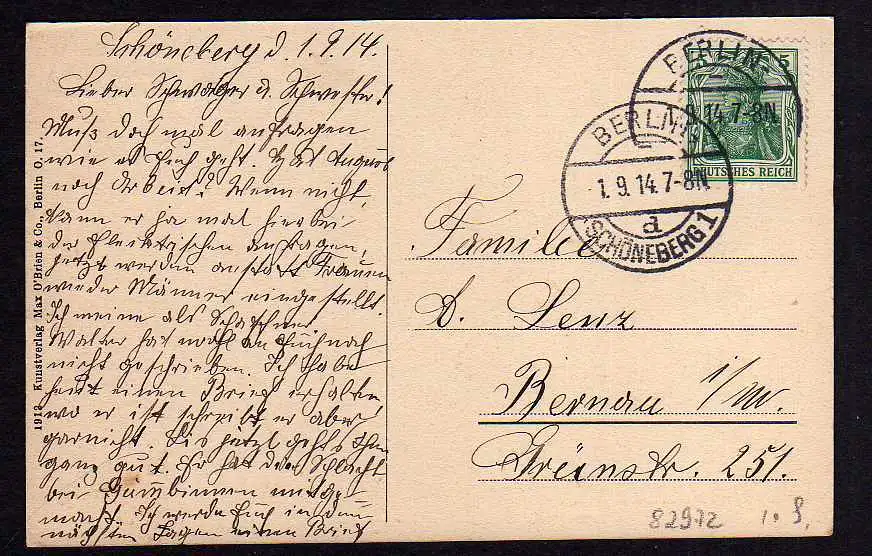 Schöneberg d. 1.9.14.
Lieber Schwager u. Schwester!
Muß doch mal anfragen
wie es Euch geht. Hat August
noch Arbeit? Wenn nicht,
kann er ja mal hier bei
der Elektrischen anfragen,
jetzt werden anstatt Frauen
wieder Männer eingestellt.
Ich meine als Schaffner.
Walter hat wohl an Euch noch
nicht geschrieben. Ich habe
heut einen Brief erhalten
wo er ist schreibt er aber
garnicht. Bis jetzt geht's ihm
ganz gut. Er hat die Schlacht
bei Gumbinnen mitge-
macht. Ich werde Euch in den
nächsten Tagen einen Brief
1913 Kunstverlag Max O'Brien & Co., Berlin O. 17.
BERLIN
1.9.14.7-8N
BERLIN
1.9.14.7-8N
a
SCHÖNEBERG 1
5
DEUTSCHES REICH
Familie
A. Lenz
Bernau i/M.
Grünstr. 251.
82972 1.9.